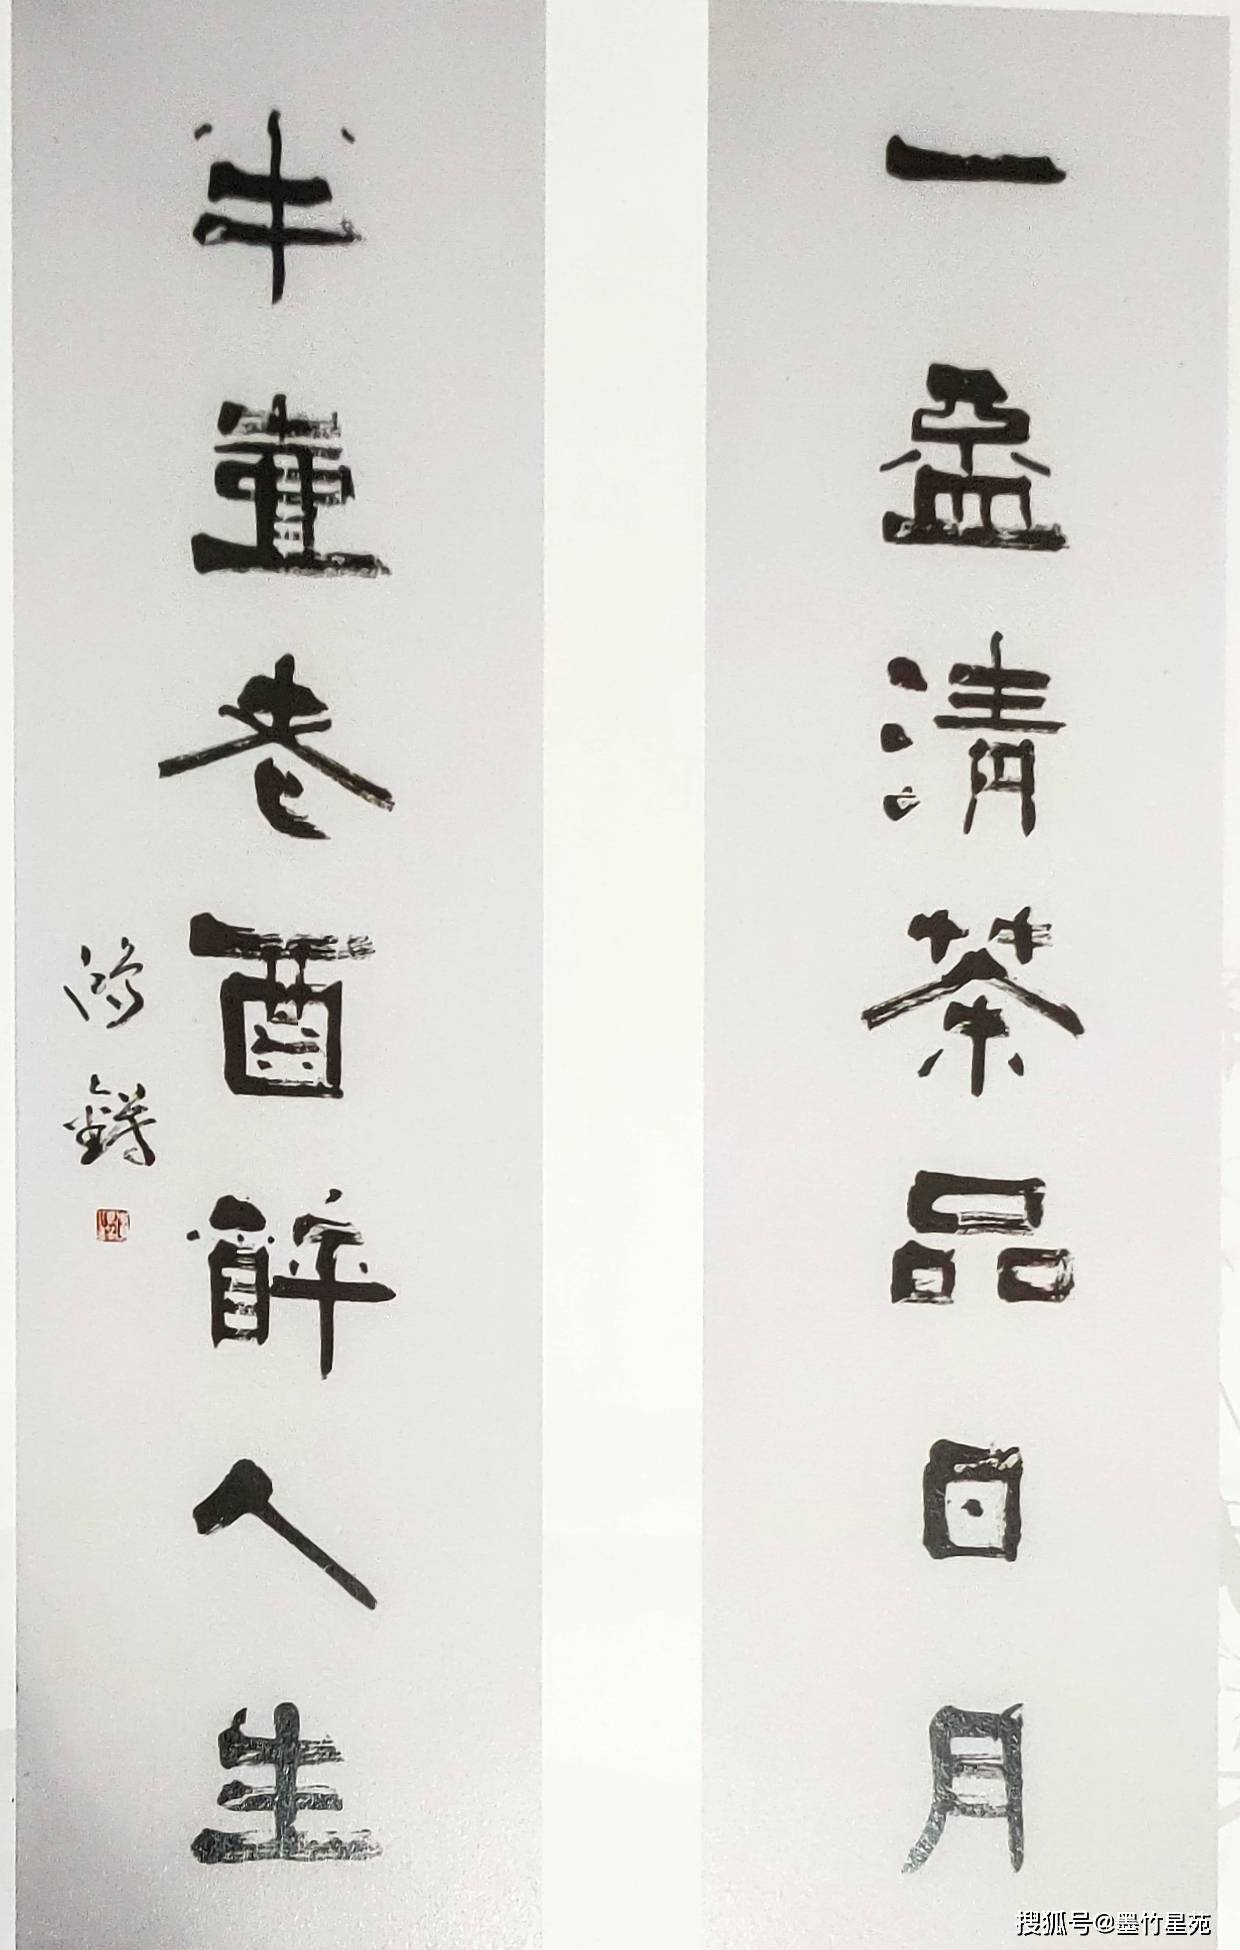 一孟清茶品日月
半壺老酉醉人生
搜狐号@墨竹星苑